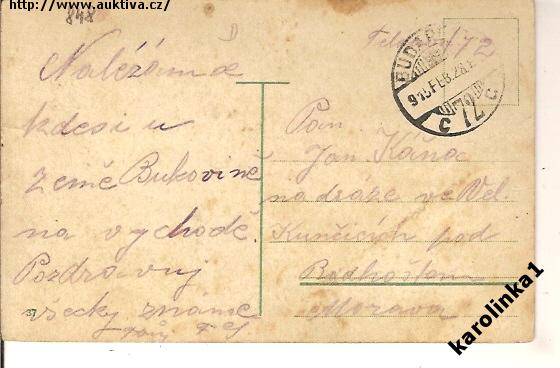 http://www.auktiva.cz/
848
Nalézám se
kdesi u
země Bukovině
na východě.
Pozdravuj
všecky známé
37
Feldpost 72
BUDAPEST 72
915 FEB. 28
C 72 C
Pan
Jan Káňa
na dráze ve Vel.
Kunčicích pod
Radhoštem
Morava
karolinka1